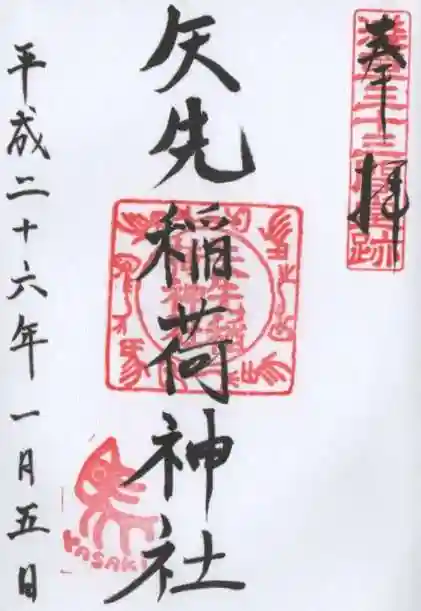 奉拝
矢先稲荷神社
平成二十六年一月五日
YASAKI